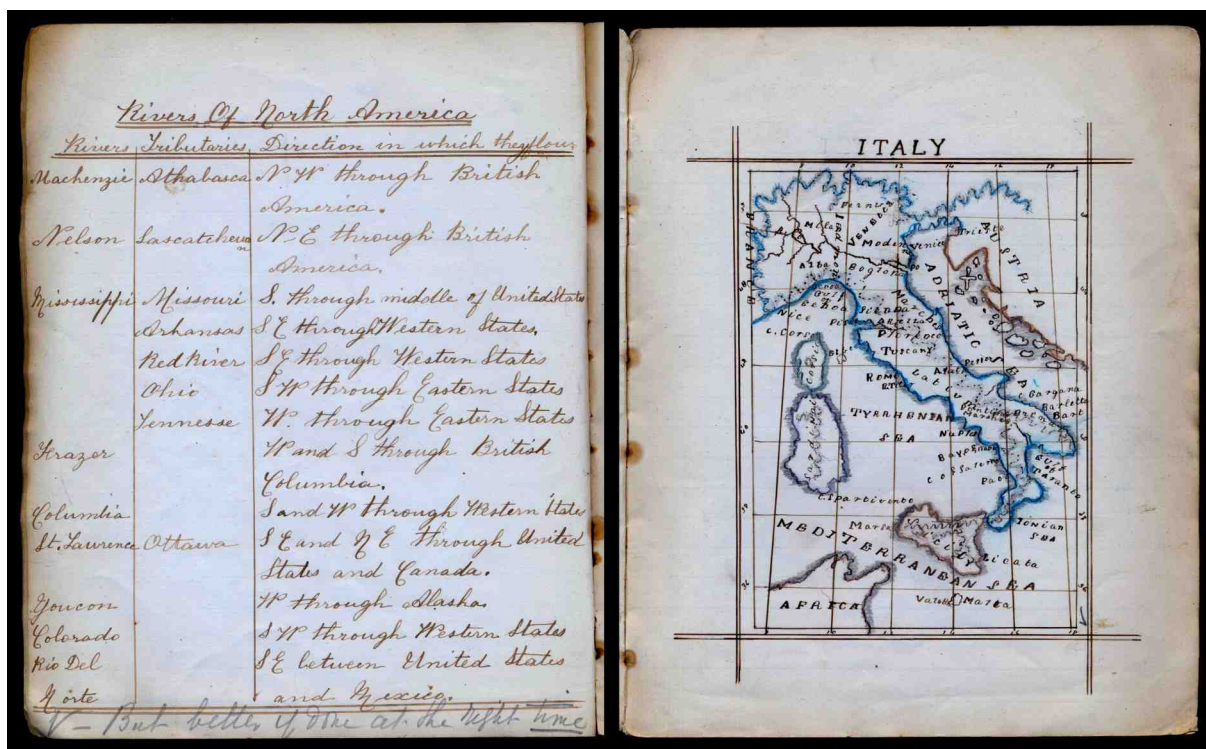 Rivers Of North America
Rivers Tributaries Direction in which they flow
Mackenzie Athabasca N W through British
America.
Nelson Sascatchewan N-E through British
America.
Mississippi Missouri S. through middle of United States
Arkansas S E through Western States.
Red River S E through Western States
Ohio S W through Eastern States
Tennesse W. through Eastern States
Frazer W and S through British
Columbia.
Columbia S and W through Western States
St. Laurence Ottawa S E and N E through United
States and Canada.
Youcon W through Alaska.
Colorado S W through Western States
Rio Del S E between United States
Norte and Mexico.
V - But better if done at the right time
ITALY
FRANCE
VENETO
Modena Venice
AUSTRIA
Trieste
Bogion
ADRATIC SEA
Gulf
Genoa
Nice
C. Cors
Marches
Florence
Tuscany
Corsica
Rome
Latium
C. Gargana
Barletta
Bari
TYRRHENIAN
SEA
Naples
Gulf
of
Taranto
Sardinia
C. Spartivento
IONIAN
SEA
Marsa
SICILY
Licata
MEDITERRANEAN SEA
AFRICA
Malta